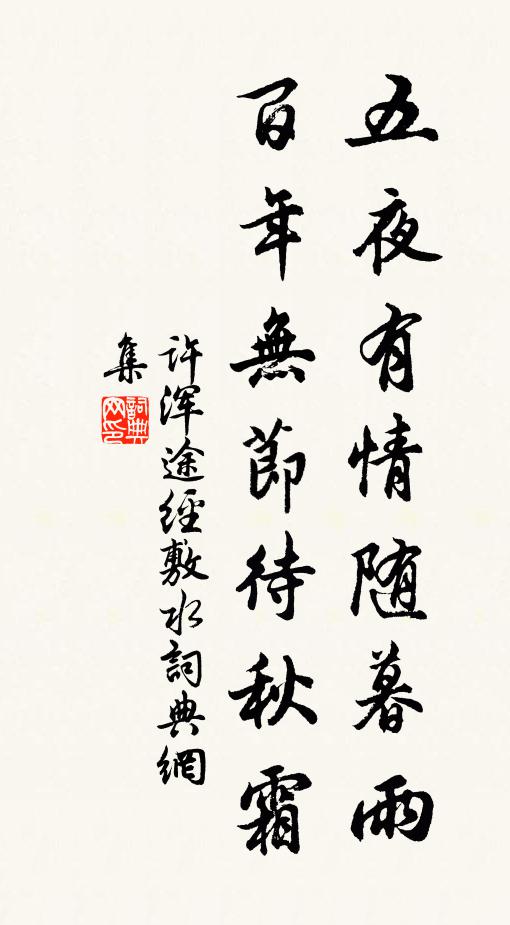 五夜有情随暮雨
百年無節待秋霜
許渾途經敷水詞典網
集
詞典网印